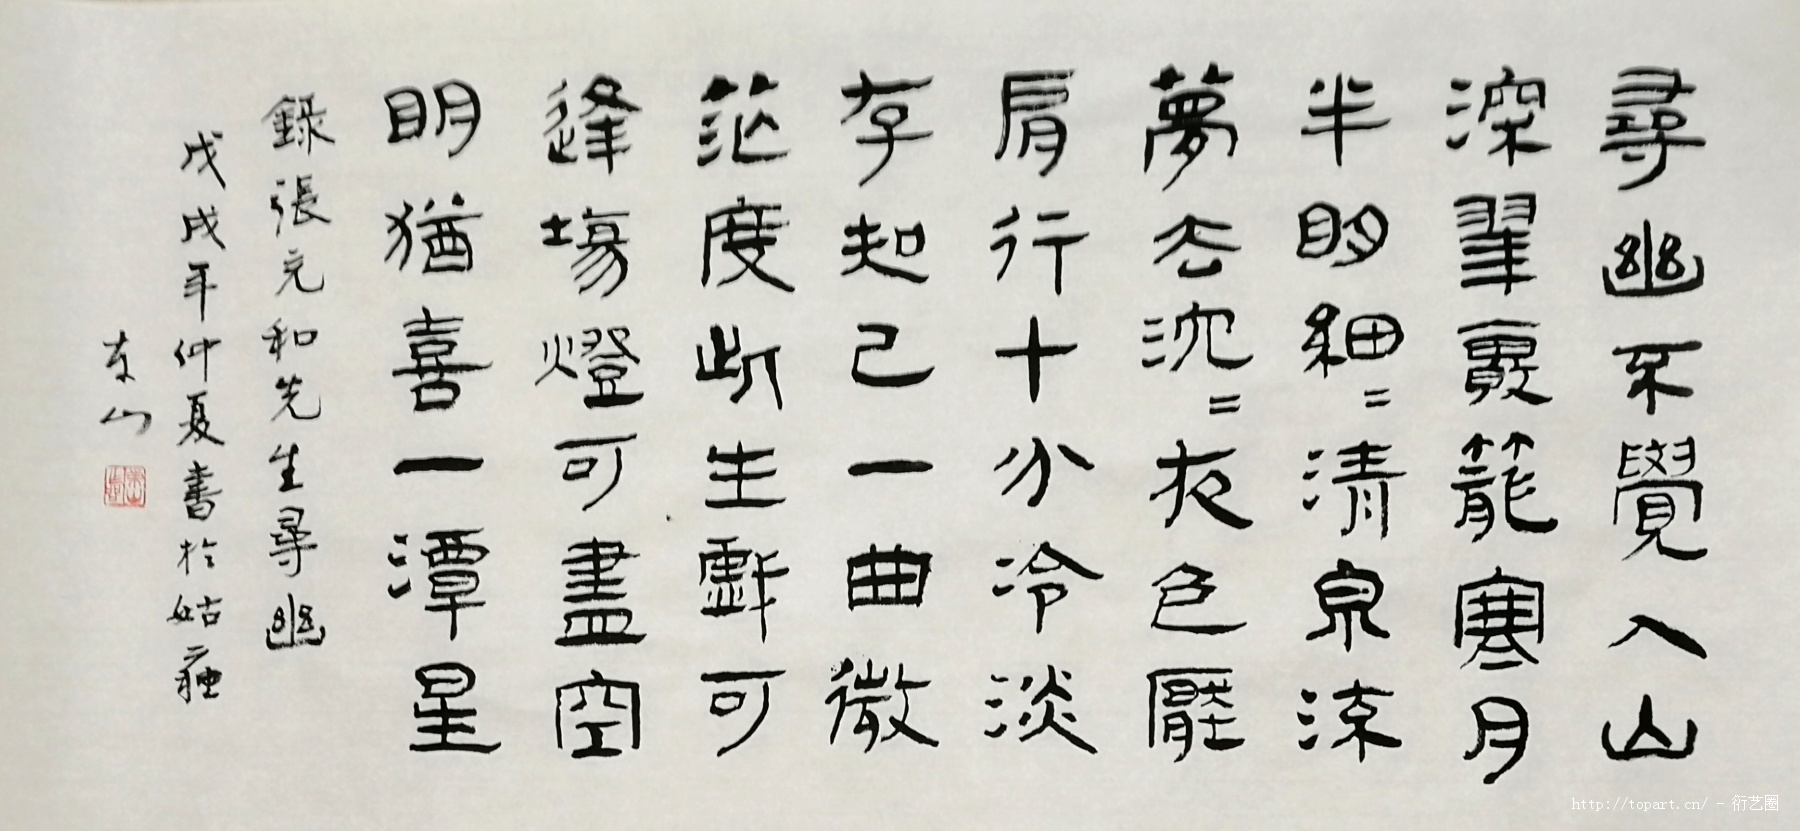 尋幽不覺入山
深翠霧籠寒月
半明細=清泉流
夢去沈=夜色壓
肩行十分冷淡
存知己一曲微
茫度此生戲可
逢場燈可盡空
明猶喜一潭星
錄張充和先生尋幽
戊戌年仲夏書於姑蘇
東山
http://topart.cn/ - 衍艺圈